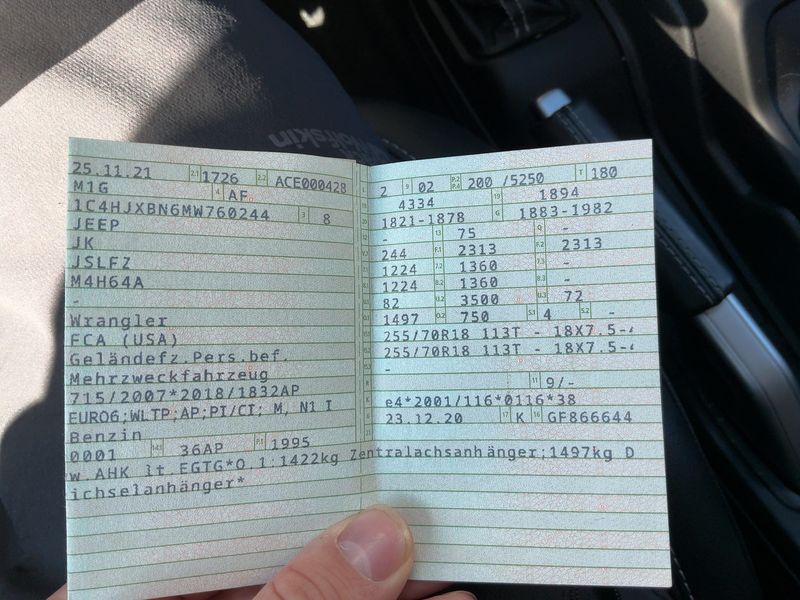 25.11.21 2.1 1726 2.2 ACE000428
M1G 4 AF
1C4HJXBN6MW760244 3 8
JEEP
JK
JSLFZ
M4H64A
-
Wrangler
FCA (USA)
Geländefz.Pers.bef.
Mehrzweckfahrzeug
715/2007*2018/1832AP
EURO6;WLTP;AP;PI/CI; M, N1 I
Benzin
0001 14.1 36AP P.1 1995
w.AHK lt.EGTG*O.1:1422kg Zentralachsanhänger;1497kg D
ichselanhänger*
2 9 02 P.2 P.4 200 /5250 T 180
4334 19 1894
1821-1878 G 1883-1982
- 13 75 Q -
244 F.1 2313 F.2 2313
1224 7.2 1360 7.3 -
1224 8.2 1360 8.3 -
82 U.2 3500 U.3 72
1497 O.2 750 S.1 4 S.2 -
255/70R18 113T - 18X7.5-
255/70R18 113T - 18X7.5-
-
11 9/-
K e4*2001/116*0116*38
23.12.20 17 K 16 GF866644
Wolfskin